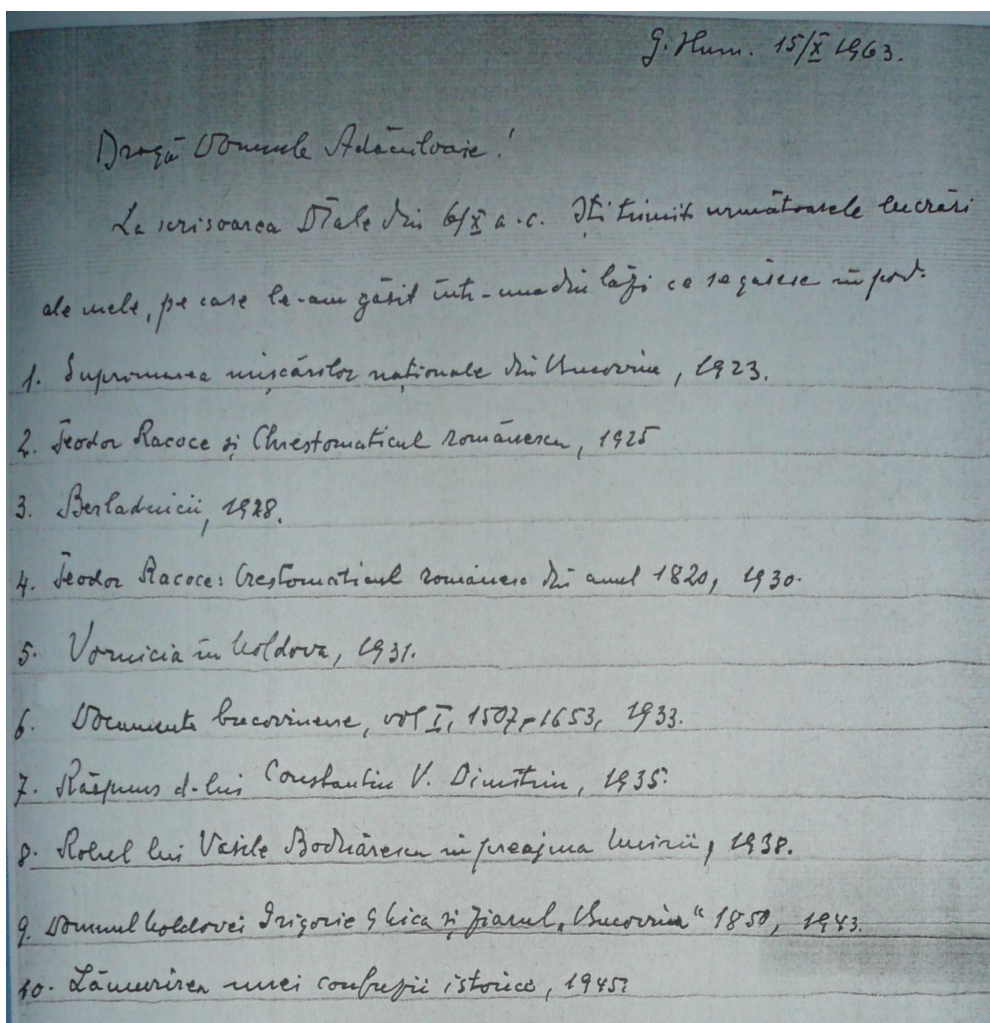 G. Hum. 15/X 1963.
Dragă Domnule Adăscăloaie!
La scrisoarea D-Tale din 6/X a.c. Îți trimit următoarele lucrări
ale mele, pe care le-am găsit într-una din lăzi ce se găsesc în pod.
1. Suprimarea mișcărilor naționale din Bucovina, 1923.
2. Teodor Racoce și Chrestomaticul românescu, 1925
3. Berladnicii, 1928.
4. Teodor Racoce: Crestomaticul românesc din anul 1820, 1930.
5. Vornicia în Moldova, 1931.
6. Documente bucovinene, vol I, 1507-1653, 1933.
7. Răspuns d-lui Constantin V. Dimitriu, 1935.
8. Rolul lui Vasile Bodnărescu în preajma Unirii, 1938.
9. Domnul Moldovei Grigorie Ghica și ziarul „Bucovina“ 1850, 1943.
10. Lămurirea unei confuzii istorice, 1945.